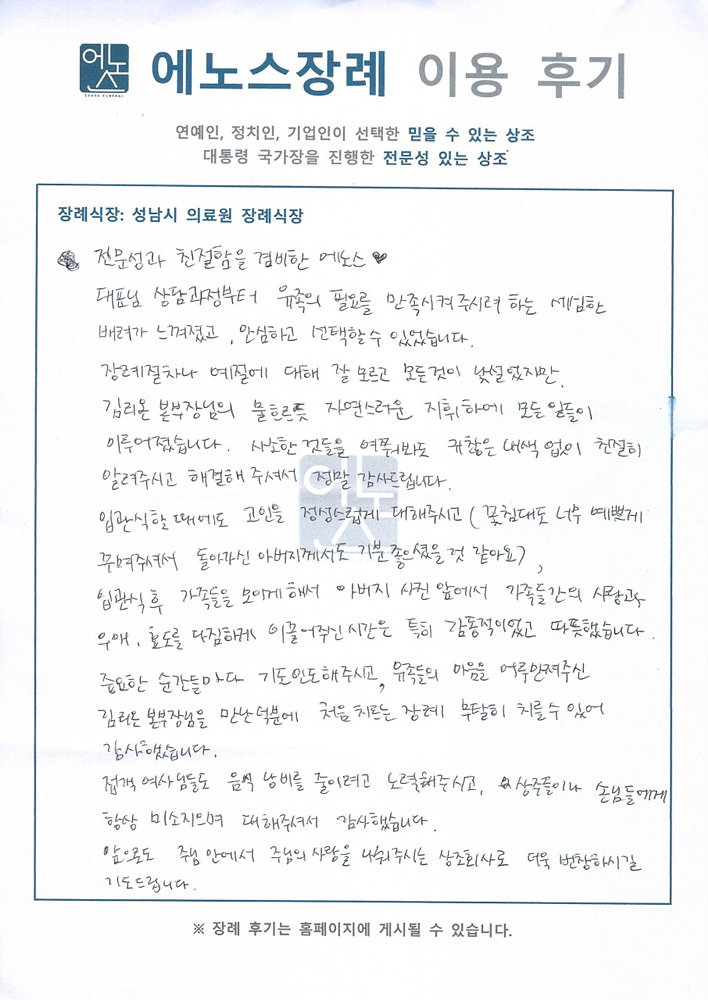 에노스
ENOSX FUNERAL
에노스장례 이용 후기
연예인, 정치인, 기업인이 선택한 믿을 수 있는 상조
대통령 국가장을 진행한 전문성 있는 상조
장례식장: 성남시 의료원 장례식장
전문성과 친절함을 겸비한 에노스 ♥
대표님 상담과정부터 유족의 필요를 만족시켜주시려 하는 세심한
배려가 느껴졌고, 안심하고 선택할 수 있었습니다.
장례절차나 예절에 대해 잘 모르고 모든것이 낯설었지만,
김리온 본부장님의 물흐르듯 자연스러운 지휘하에 모든 일들이
이루어졌습니다. 사소한 것들을 여쭤봐도 귀찮은 내색 없이 친절히
알려주시고 해결해 주셔서 정말 감사드립니다.
입관식할 때에도 고인을 정성스럽게 대해주시고 (꽃침대도 너무 예쁘게
꾸며주셔서 돌아가신 아버지께서도 기분 좋으셨을 것 같아요),
입관식 후 가족들을 모이게 해서 아버지 사진 앞에서 가족들간의 사랑과
우애, 효도를 다짐하게 이끌어주신 시간은 특히 감동적이었고 따뜻했습니다.
중요한 순간들마다 기도인도해주시고, 유족들의 마음을 어루만져주신
김리온 본부장님을 만난 덕분에 처음 치르는 장례 무탈히 치를 수 있어
감사했습니다.
접객 여사님들도 음식 낭비를 줄이려고 노력해주시고, 상주들이나 손님들에게
항상 미소지으며 대해주셔서 감사했습니다.
앞으로도 주님 안에서 주님의 사랑을 나눠주시는 상조회사로 더욱 번창하시길
기도드립니다.
※ 장례 후기는 홈페이지에 게시될 수 있습니다.